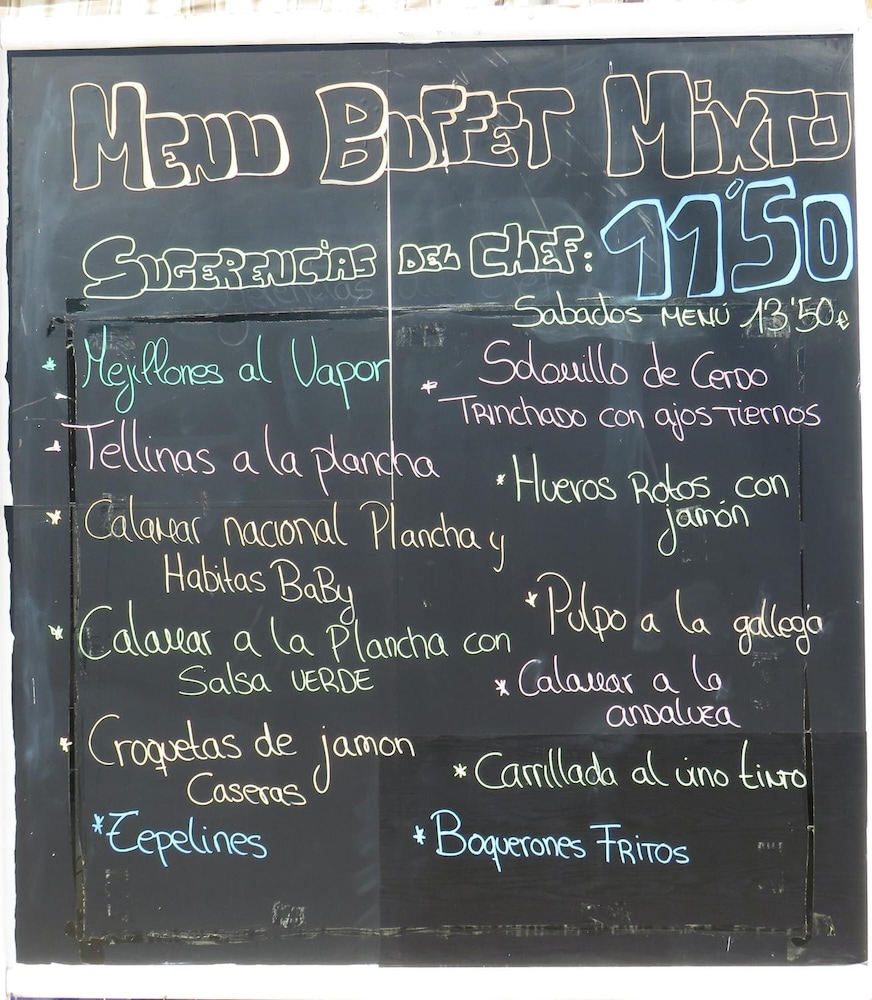 MENU BUFFET MIXTO
SUGERENCIAS DEL CHEF: 11'50
Sabados MENÚ 13'50€
* Mejillones al Vapor
* Tellinas a la plancha
* Calamar nacional Plancha y
Habitas BaBy
* Calamar a la Plancha con
Salsa VERDE
* Croquetas de jamon
Caseras
* Zepelines
* Solomillo de Cerdo
TRinchado con ajos Tiernos
* Huevos Rotos con
jamón
* Pulpo a la gallega
* Calamar a la
andaluza
* Carrillada al vino tinto
* Boquerones FRITOS